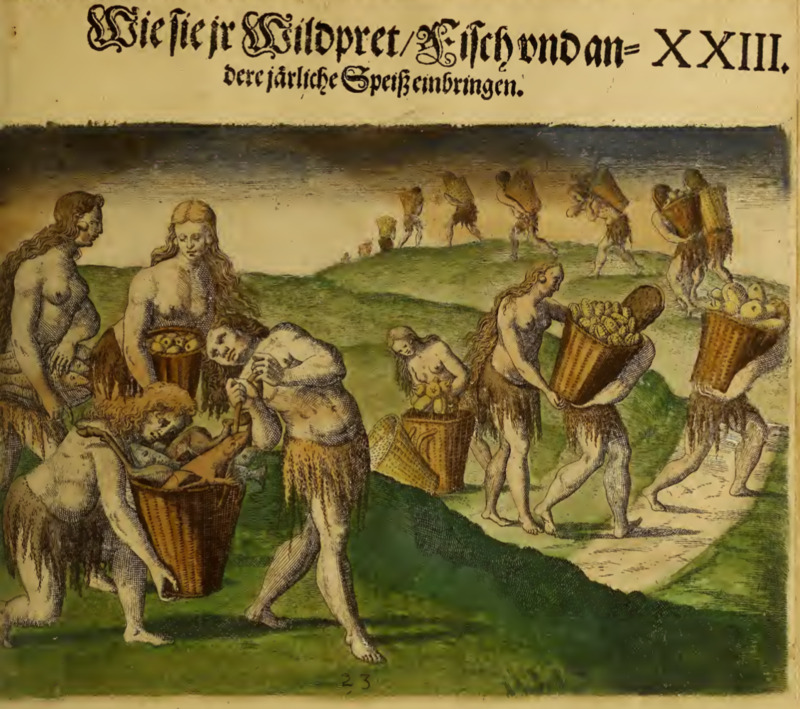 Wie sie jr Wildpret/Fisch vnd an= XXIII.
dere järliche Speiß einbringen.
23